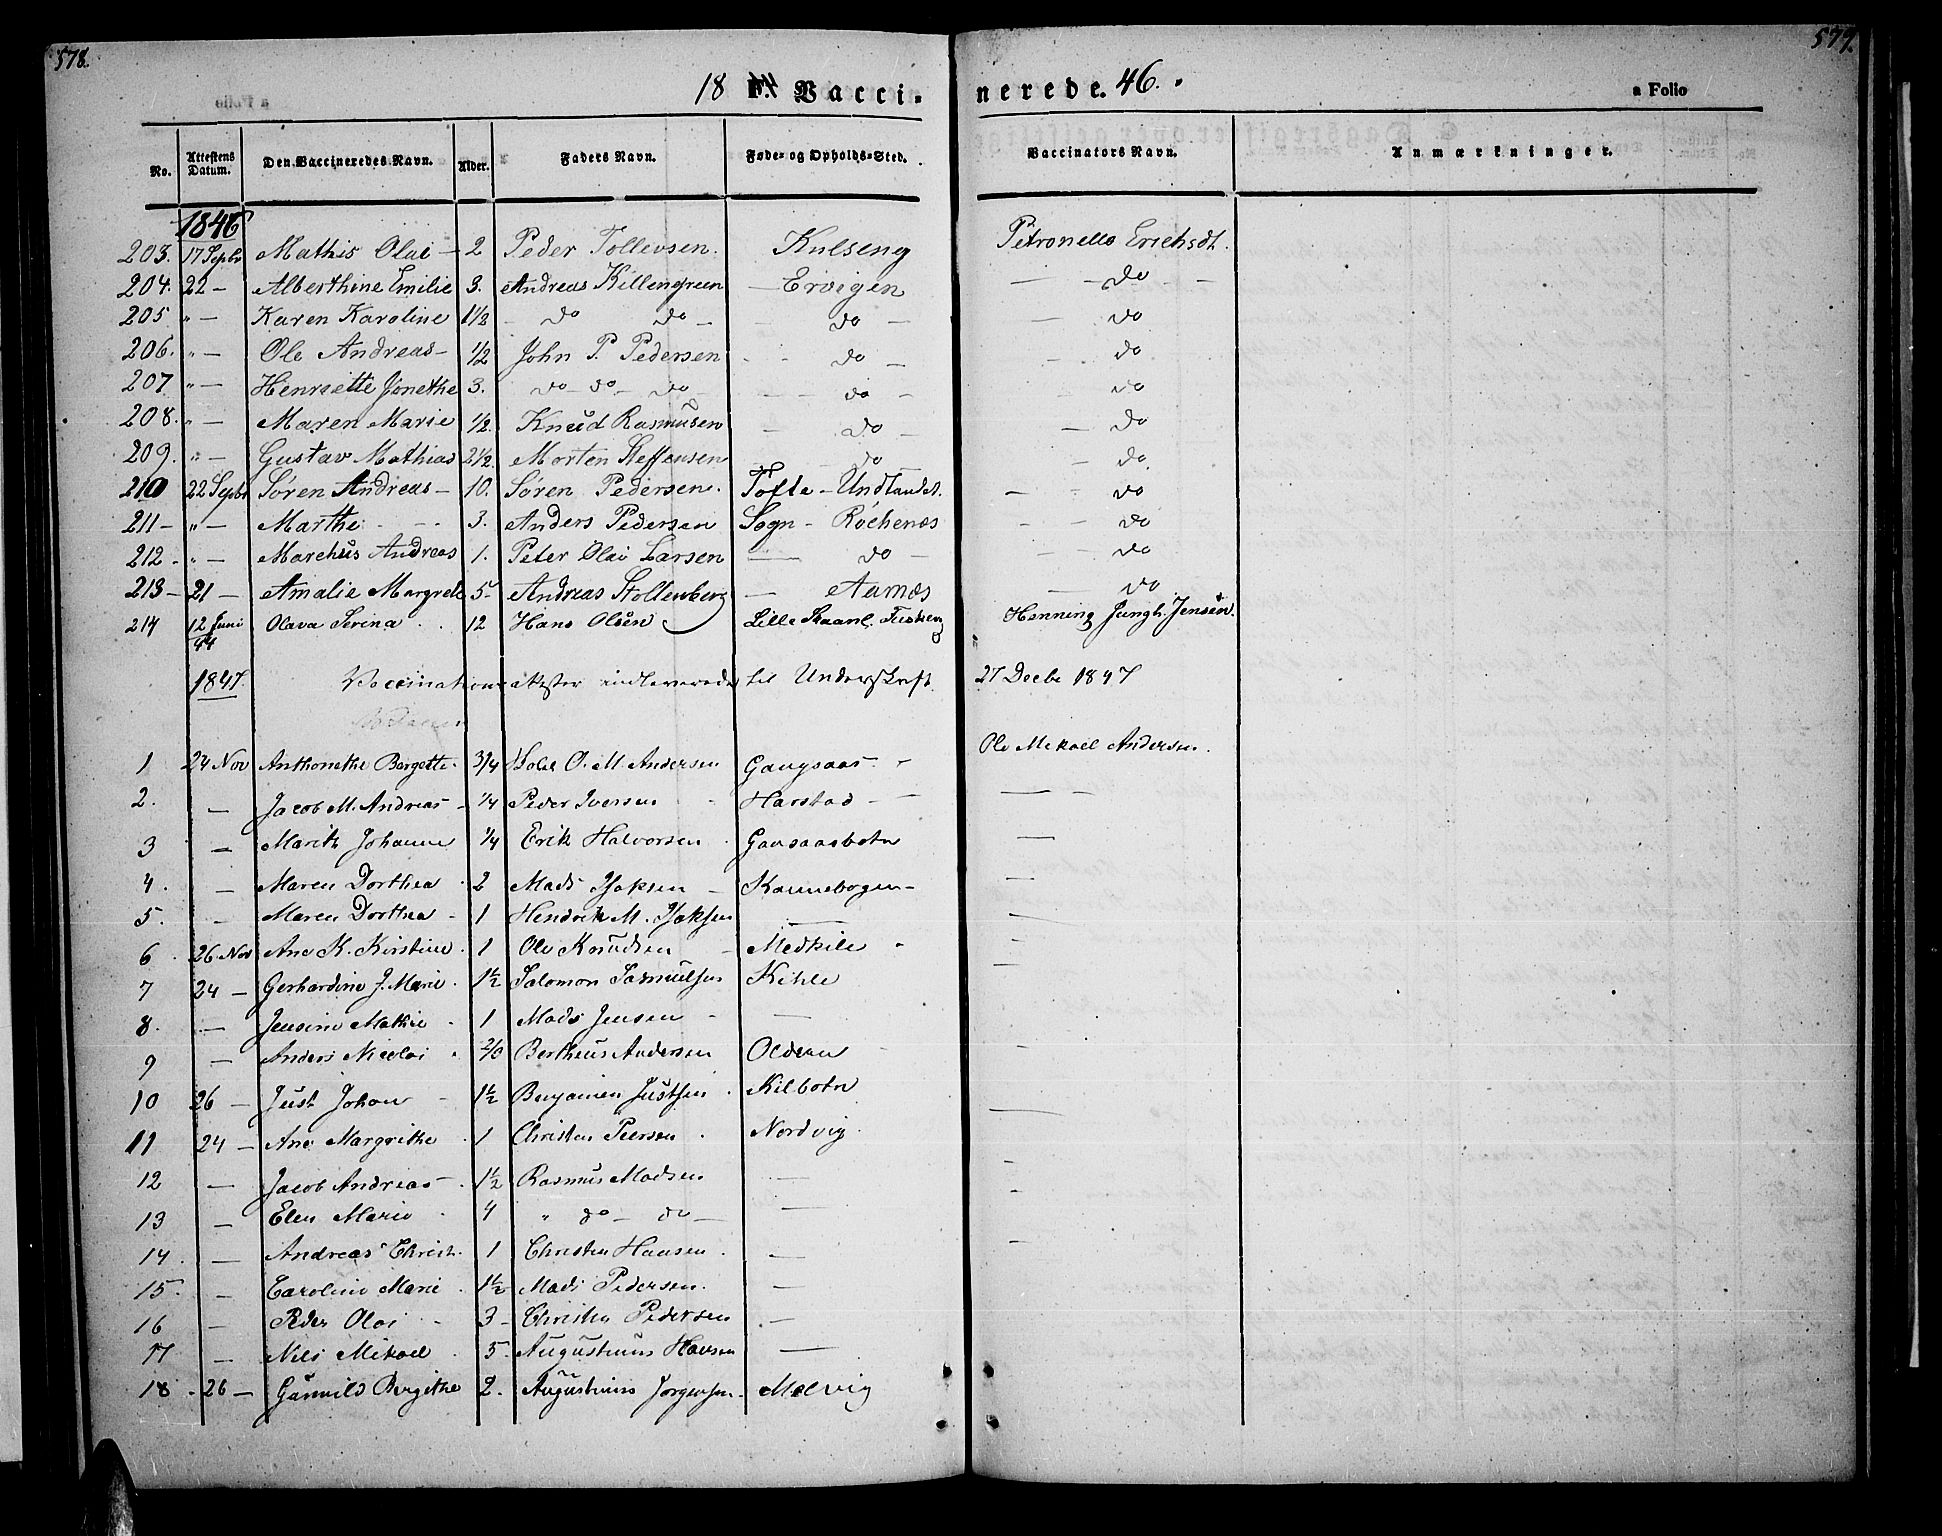 578.
579.
18 F. Vacci- nerede. 46.
a Folio
No. Attestens Datum. Den Vaccineredes Navn. Alder. Faders Navn. Føde- og Opholds-Sted. Vaccinators Navn. Anmærkninger.
1846
203. 17 Sepbr Mathis Olai - 2 Peder Tollevsen. Kulseng Petronelle Erichsdt.
204. 22 - Alberthine Emilie 3. Andreas Killengreen - Ervigen - do -
205 " - Karen Karoline 1 1/2 - do do - - do - - do
206. " - Ole Andreas - 1/2 John P. Pedersen - - do - - do
207 " - Henriette Jonethe 3. do - do - do - - do - - do
208. " - Maren Marie 1/2. Knud Rasmusen - do - - do
209. " - Gustav Mathias 2 1/2. Morten Steffensen - do - do.
210 22 Sepbr Søren Andreas - 10. Søren Pedersen. Tofte - Undlandet. - - do
211 - " - Marthe - - 3. Anders Pedersen Sogn - Røchenæs - - do
212 - " - Marchus Andreas 1. Peter Olai Larsen - do - - - do
213 - 21 - Amalie Margrete 5 - Andreas Stoltenberg - Aarnæs - do
214 12 Juni 44 Olava Serina . 12 Hans Olsen Lille Skaanl. Henning Junghl. Jensen.
1847. Vaccinations attester indleverede til Underskrift 27 Decbr 1847
1 24 Nov Anthonethe Bergette. 3/4 O. M. Andersen Gangsaas - Ole Mikael Andersen.
2. - Jacob M. Andreas - 1/4 Peder Iversen - Harstad - - -
3 - Marith Johanne 1/4 Erik Halvorsen . Gansaasbotn -
4. - Maren Dorthea . 2 Mads Isaksen - Kannebogen - -
5. - Maren Dorthea - 1 Hendrik M. Isaksen - -
6 . 26 Nov Ane K. Kirstine . 1 Ole Knudsen - Medkile - -
7 24 - Gerhardine J. Marie . 1 1/2 Salomon Samuelsen Kihle -
8. - Jensine Mathie . 1 Mads Jensen - -
9 - Anders Nicolai . 2/3 Bertheus Andersen Oldran -
10 26 - Just Johan - 1 1/2 Benjamen Justsen . Kilbotn -
11 24 - Ane Margrethe . 1 Christen Peersen . Nordvig.
12 - Jacob Andreas - . 1 1/2 Rasmus Madsen - -
13 - Elen Marie . 4 " do - do - - -
14 . - Andreas Christ. 1 Christen Hansen . - -
15. - Caroline Marie . 1 1/2 Mads Pedersen. -
16 - Peder Olai - 3 - Christen Pedersen -
17 - Nils Mikael . 5. Augustinus Hansen -
18 . 26 - Gunnild Bergithe 2. Augustinus Jørgensen. Melvig